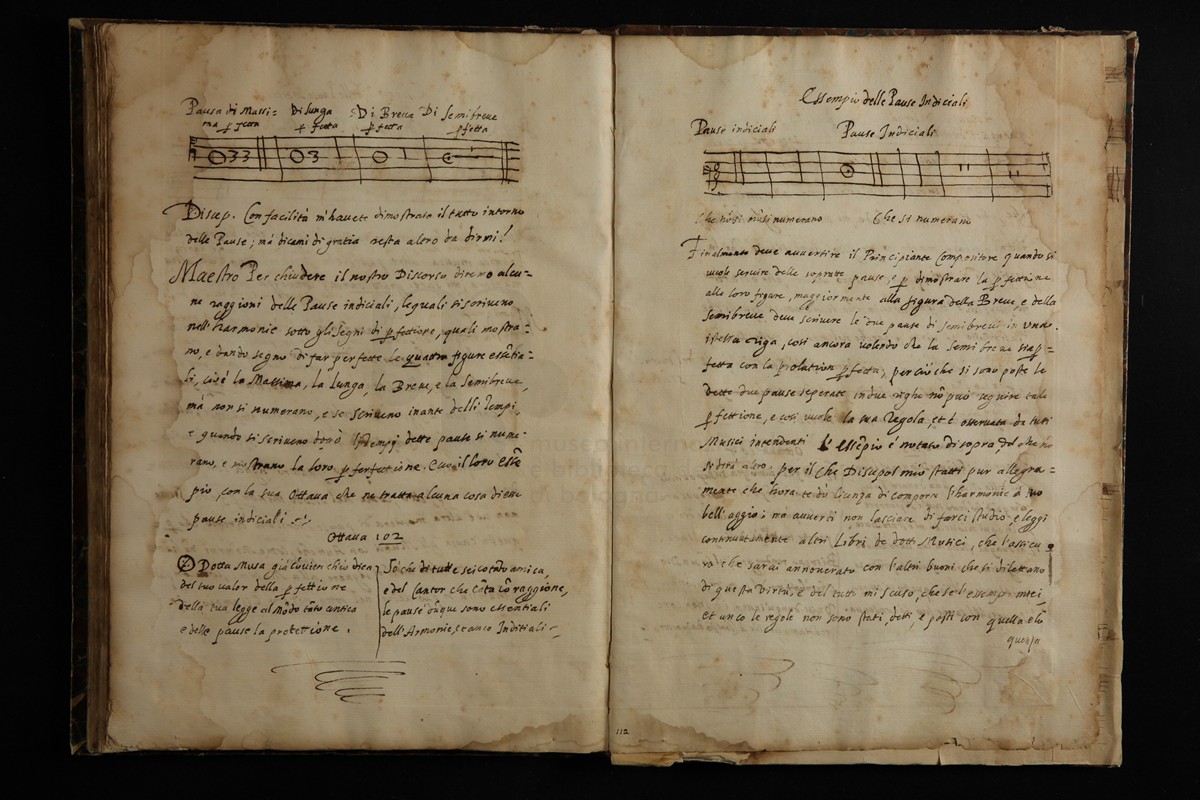 Pausa di Massi= Di lunga Di Breva Di Semibreve
ma p fetta p fetta p fetta p fetta
O33 O3 O C
Discep. Con facilità m'havete dimostrato il tutto intorno
delle Pause; mà dicami di gratia resta altro da dirmi!
Maestro Per chiudere il nostro Discorso diremo alcu=
ne raggioni delle Pause indiciali, lequali si scriveno
nell'Harmonie sotto gli segni di p fettione, quali mostra=
no, e dando segno di far perfette le quattro figure essētia=
li, cioè la Massima, la lunga, la Breve, e la Semibreve,
mà non si numerano, e se scriveno inante delli Tempi,
e quando si scriveno doppò Tempi dette pause si nume=
rano, e mostrano la loro perfettione. Ecco il loro essē
pio, con la sua Ottava che ne tratta alcuna cosa di esse
pause indiciali
Ottava 102
Dotta Musa già Convien ch'io dica
del tuo valor della p fettione
della tua legge al modo tāto antica
e delle pause la protettione.
Sò chi di tutte sei cotādo amica,
e del Cantor che cāta cō raggione,
le pause dūque sono essentiali
dell'Armonie, e anco Inditiali
Essempio delle Pause Indiciali
Pause indiciali Pause Indiciali
Che nō si numerano Che si numerano
Finalmente deve avvertire il Principiante Compositore quando si
vuole servire delle sopratte pause, e p dimostrare la p fettione
alle loro figure, maggiormente alla figura della Breve, e della
Semibreve deve scrivere le due pause di semibrevi in una
istessa riga, così ancora volendo che la semibreve sia p=
fetta con la prolation p fetta, perciò che si sono poste le
dette due pause seperate in due righe nō può seguire tale
p fettione, e così vuole la sua Regola, et è osservata da tutti
Musici intendenti L'essēpio è notato di sopra,
altro. per il che Discepol mio statti pur allegra=
mente che hora te dò licenza di comporre l'harmonie à tuo
bell'aggio; mà averti non lasciare di farci studio, e leggi
continuatamente altri Libri de dotti Musici, che t'assicu
ro che sarai annoverato con l'altri buoni che si dilettano
di questa virtù, e del tutto mi scuso, che se l'essempi miei,
et anco le regole non sono stati, detti, e posti con quella elo
quenza
112